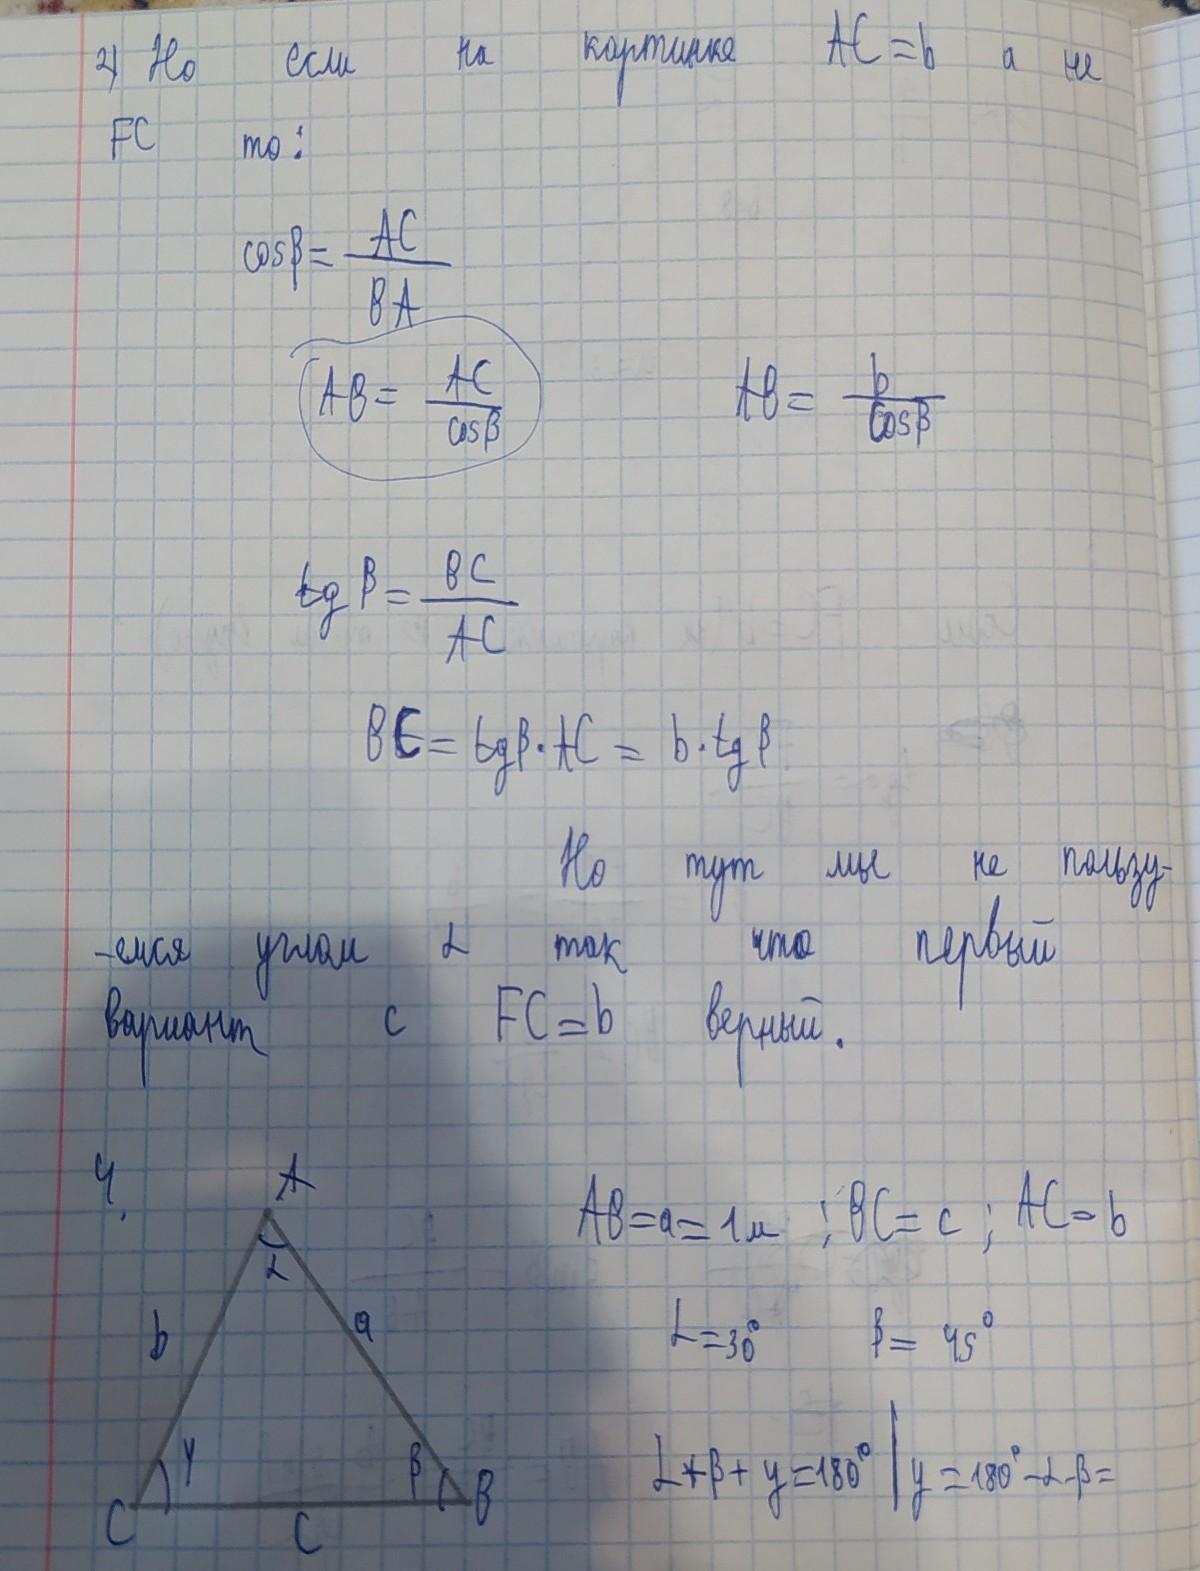 2) Но если на картинке AC=b а не
FC то:
cosβ= AC
BA
AB= AC
cosβ
AB= b
cosβ
tgβ= BC
AC
BC= tgβ·AC = b·tgβ
Но тут мы не пользу-
-емся углом α так что первый
вариант с FC=b верный.
4.
A
α
b
a
γ
β
C
c
B
AB=a=1м ; BC=c; AC=b
α=30° β= 45°
α+β+γ=180° | γ=180°-α-β=